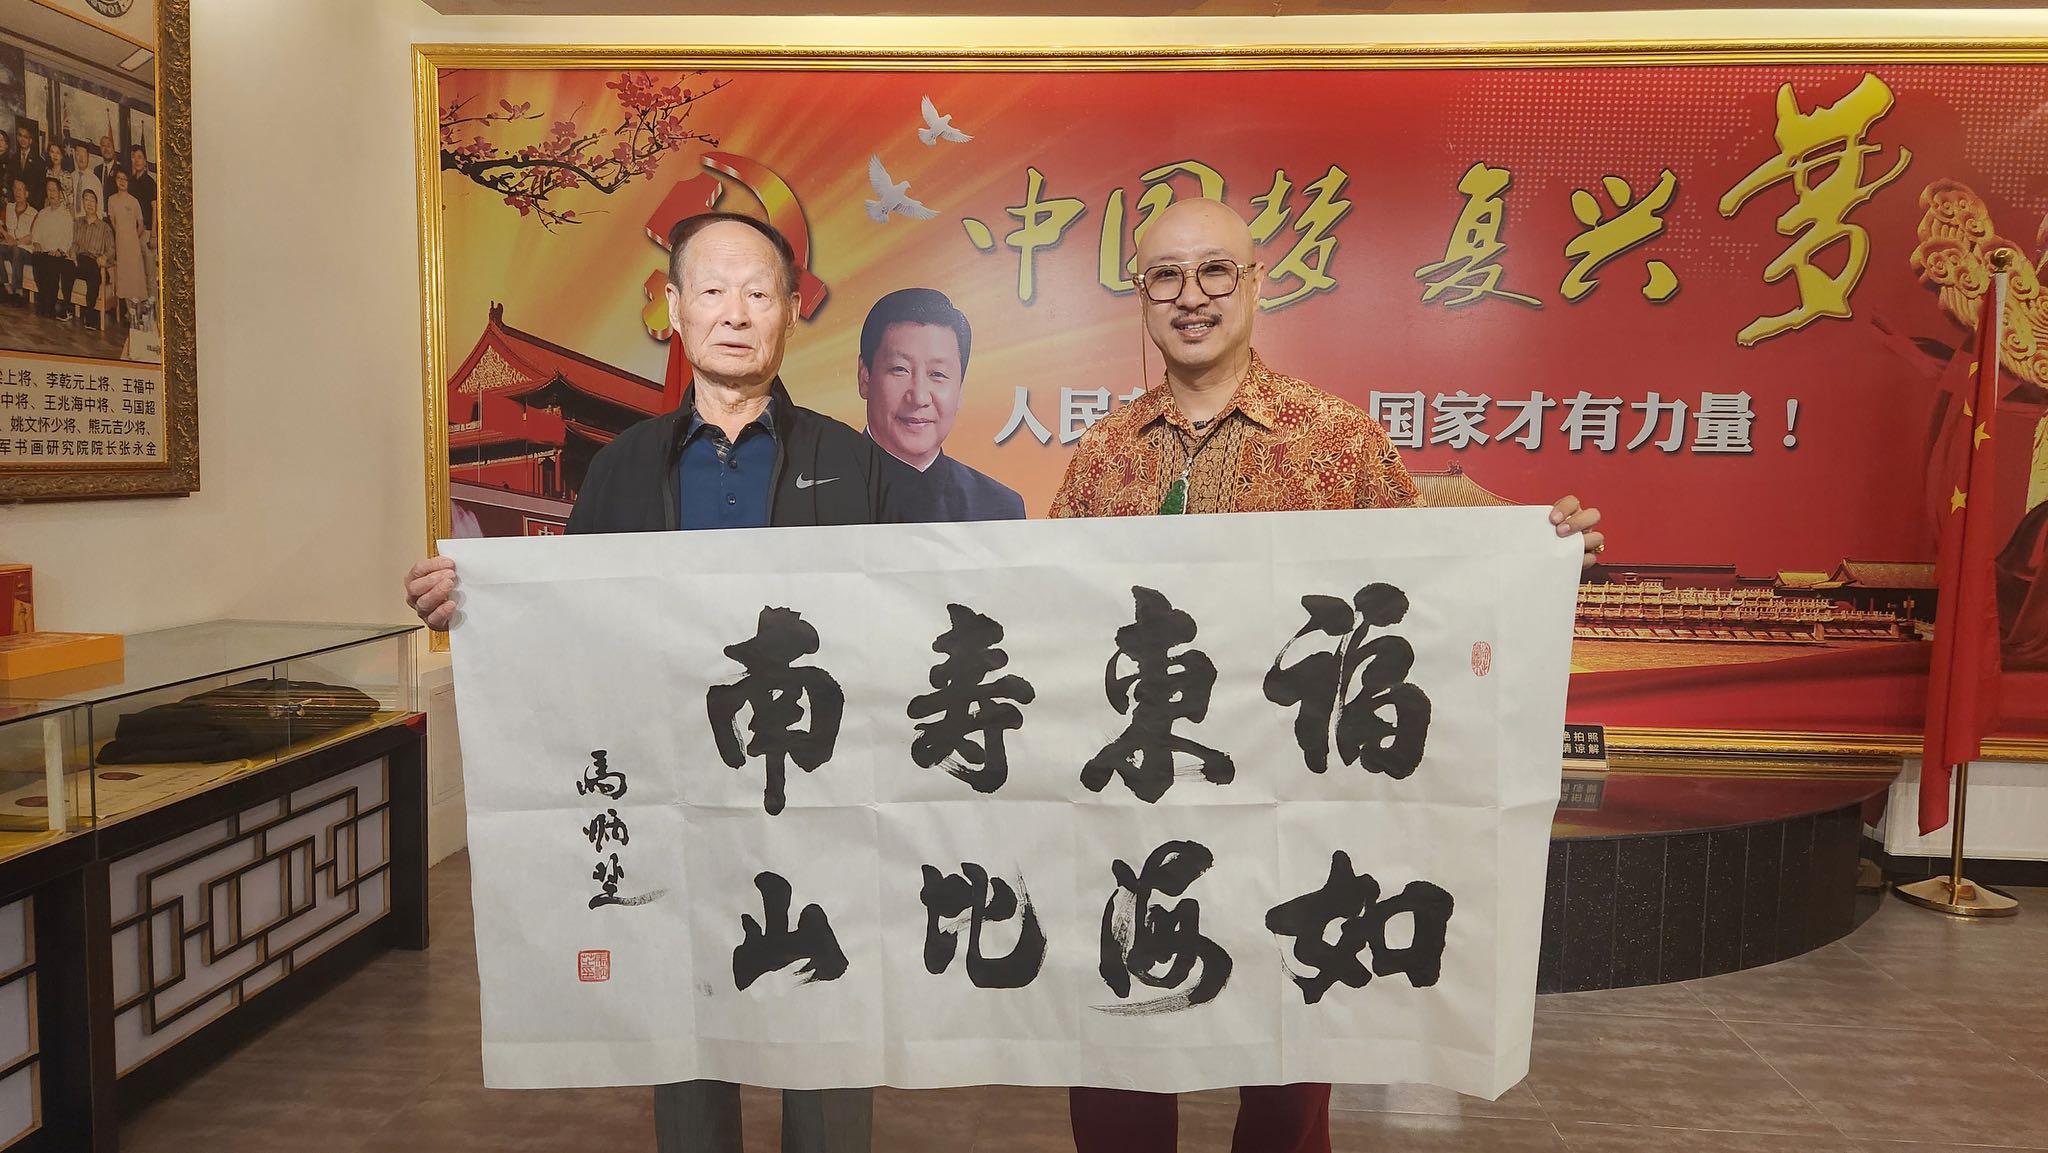 中国梦 复兴梦
人民 国家才有力量！
上将、李乾元上将、王福中
中将、王兆海中将、马国超
、姚文怀少将、熊元吉少将、
军书画研究院院长张永金
福如
東海
寿比
南山
馬炳
拍照
请谅解